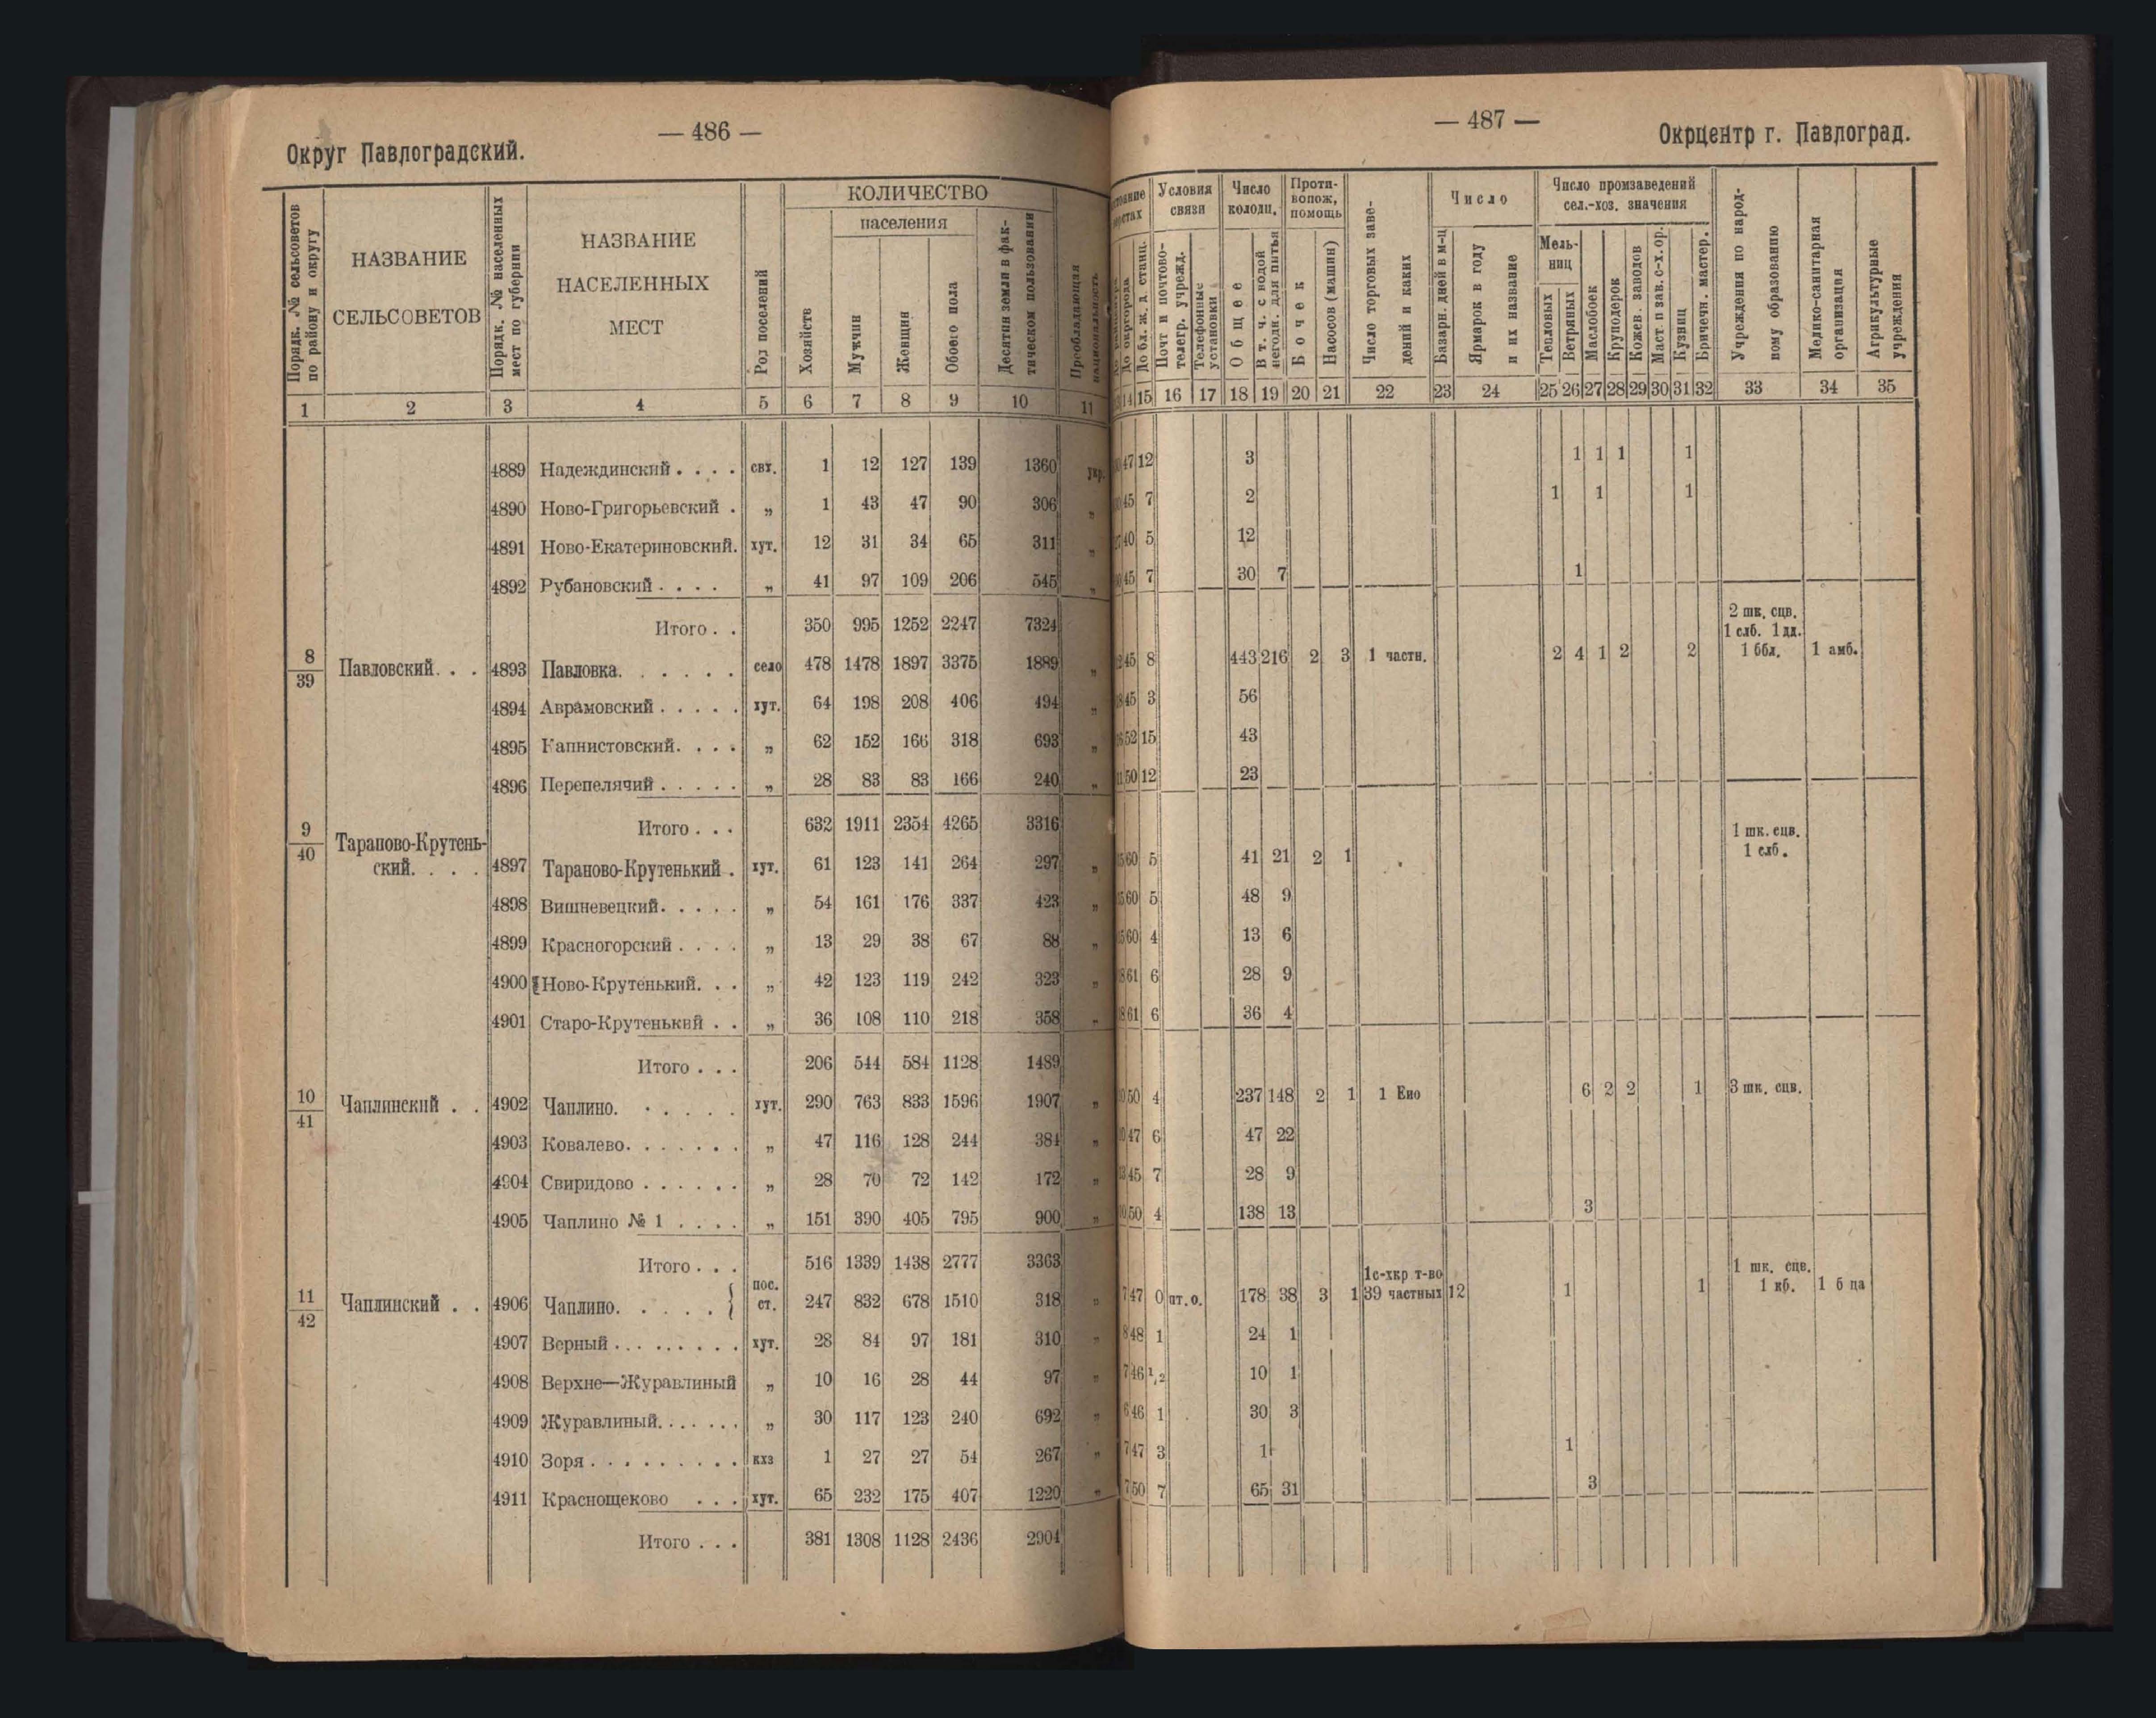 — 486 —
Округ Павлоградский.
Порядк. № сельсоветов по району и округу
НАЗВАНИЕ СЕЛЬСОВЕТОВ
Порядк. № населенных мест по губернии
НАЗВАНИЕ НАСЕЛЕННЫХ МЕСТ
Род поселений
КОЛИЧЕСТВО
Хозяйств
населения
Мужчин
Женщин
Обоего пола
Десятин земли в фактическом пользовании
Преобладающая национальность
1 2 3 4 5 6 7 8 9 10 11
4889 Надеждинский . . . . свт. 1 12 127 139 1360 укр.
4890 Ново-Григорьевский . „ 1 43 47 90 306 „
4891 Ново-Екатериновский. хут. 12 31 34 65 311 „
4892 Рубановский . . . . „ 41 97 109 206 545 „
Итого . . 350 995 1252 2247 7324
8/39 Павловский. . . 4893 Павловка. . . . . . село 478 1478 1897 3375 1889 „
4894 Аврамовский . . . . . хут. 64 198 208 406 494 „
4895 Капнистовский. . . . „ 62 152 166 318 693 „
4896 Перепелячий . . . . . „ 28 83 83 166 240 „
Итого . . . 632 1911 2354 4265 3316
9/40 Тараново-Крутень-
ский. . . . 4897 Тараново-Крутенький . хут. 61 123 141 264 297 „
4898 Вишневецкий. . . . . „ 54 161 176 337 423 „
4899 Красногорский . . . . „ 13 29 38 67 88 „
4900 Ново-Крутенький. . . „ 42 123 119 242 323 „
4901 Старо-Крутенький . . „ 36 108 110 218 358 „
Итого . . . 206 544 584 1128 1489
10/41 Чаплинский . . 4902 Чаплино. . . . . . хут. 290 763 833 1596 1907 „
4903 Ковалево. . . . . . . „ 47 116 128 244 384 „
4904 Свиридово . . . . . . „ 28 70 72 142 172 „
4905 Чаплино № 1 . . . . „ 151 390 405 795 900 „
Итого . . . 516 1339 1438 2777 3363
11/42 Чаплинский . . 4906 Чаплино. . . . . { пос. ст. 247 832 678 1510 318 „
4907 Верный . . . . . . . . . хут. 28 84 97 181 310 „
4908 Верхне—Журавлиный „ 10 16 28 44 97 „
4909 Журавлиный. . . . . . „ 30 117 123 240 692 „
4910 Зоря . . . . . . . . . кхз 1 27 27 54 267 „
4911 Краснощеково . . . хут. 65 232 175 407 1220 „
Итого . . . 381 1308 1128 2436 2904
— 487 —
Окрцентр г. Павлоград.
До окргорода
До бл. ж. д. станц.
Условия связи
Почт и почтово-телегр. учрежд.
Телефонные установки
Число колодц.
Общее
В т. ч. с водой негодн. для питья
Проти-
вопож,
помощь
Бочек
Насосов (машин)
Число торговых заведений и каких
Число
Базарн. дней в м-ц
Ярмарок в году и их название
Число промзаведений
сел.-хоз. значения
Мель-
ниц
Тепловых
Ветряных
Маслобоек
Круподерок
Кожев. заводов
Маст п зав. с-х.ор.
Кузниц
Бричечн. мастер.
Учреждения по народному образованию
Медико-санитарная организация
Агрикультурные учреждения
14 15 16 17 18 19 20 21 22 23 24 25 26 27 28 29 30 31 32 33 34 35
47 12 3 1 1 1 1
45 7 2 1 1 1
40 5 12
45 7 30 7 1
2 шк. сцв.
1 слб. 1 дд.
45 8 443 216 2 3 1 частн. 2 4 1 2 2 1 ббл. 1 амб.
45 3 56
52 15 43
50 12 23
1 шк. сцв.
1 слб.
60 5 41 21 2 1
60 5 48 9
60 4 13 6
61 6 28 9
61 6 36 4
50 4 237 148 2 1 1 Ено 6 2 2 1 3 шк. сцв.
47 6 47 22
45 7 28 9
50 4 138 13 3
1с-хкр т-во 1 шк. сцв.
7 47 0 пт. о. 178 38 3 1 39 частных 12 1 1 1 кб. 1 б ца
8 48 1 24 1
7 46 1/2 10 1
6 46 1 30 3
7 47 3 1 1
7 50 7 65 31 3